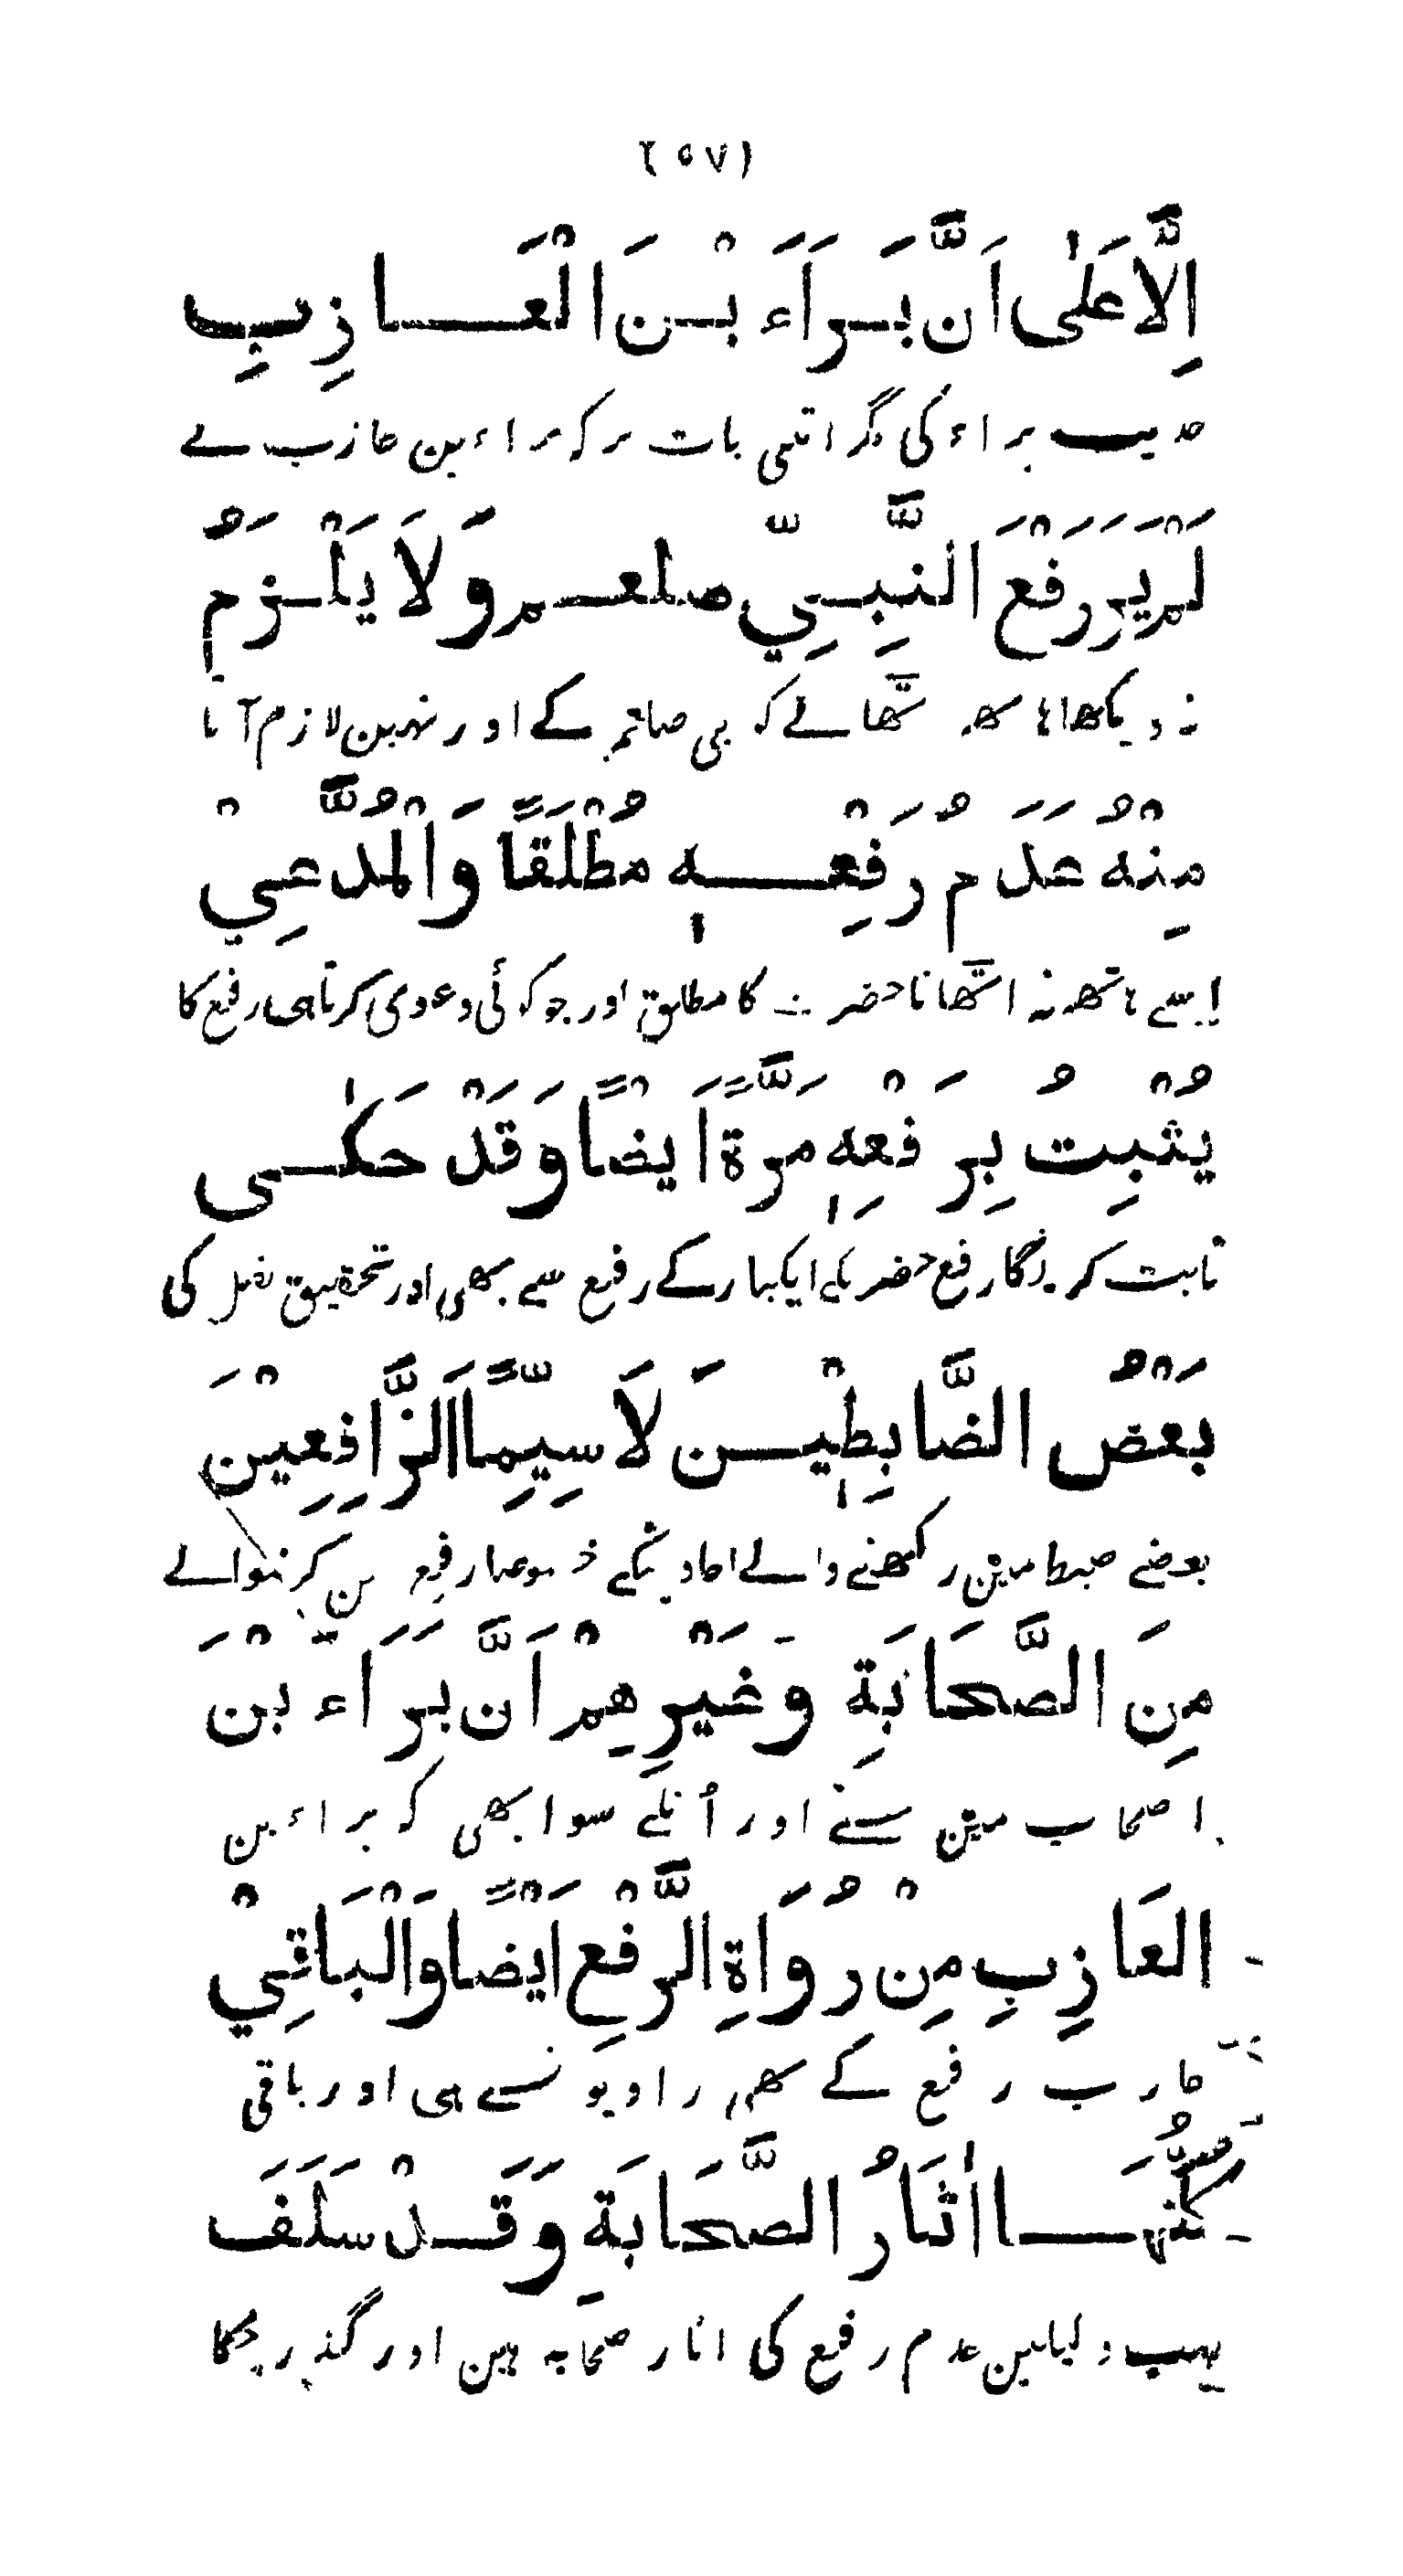 (٥٧)
اِلَّا عَلٰى اَنَّ بَرَاَءَ بْنَ الْعَازِبِ
حدیث براء کی مگر اتنی بات پر کہ براء بن عازب نے
لَمْ يَرَ رَفْعَ النَّبِيِّ صلعم وَلَا يَلْزَمُ
نہ دیکھا ہاتھ اٹھانے کو نبی صلعم کے اور نہین لازم آتا
مِنْهُ عَدَمُ رَفْعِهٖ مُطْلَقًا وَالْمُدَّعِيْ
اِسے ہاتھ نہ اٹھانا حضرت کا مطلق اور جو کوئی دعوی کرتا ہی رفع کا
يُثْبِتُ بِرَفْعِهٖ مَرَّةً اَيْضًا وَقَدْ حَكٰى
ثابت کریگا رفع حضرتکے ایکبار کے رفع سے بھی اور تحقیق نقل کی
بَعْضُ الضَّابِطِيْنَ لَا سِيَّمًا الرَّافِعِيْنَ
بعضے ضبط مین رکھنے والے احادیثکے خصوصا رفع کرنیوالے
مِنَ الصَّحَابَةِ وَغَيْرِهِمْ اَنَّ بَرَاءَ بْنَ
اصحاب مین سے اور اُنکے سوا بھی کہ براء بن
العَازِبِ مِنْ رُوَاةِ الرَّفْعِ اَيْضًا وَالْبَاقِيْ
عازب رفع کے بھی راویونسے ہی اور باقی
كُلُّهَا اٰثَارُ الصَّحَابَةِ وَقَدْ سَلَفَ
سب دلیلین عدم رفع کی اثار صحابہ ہین اور گذر چکا